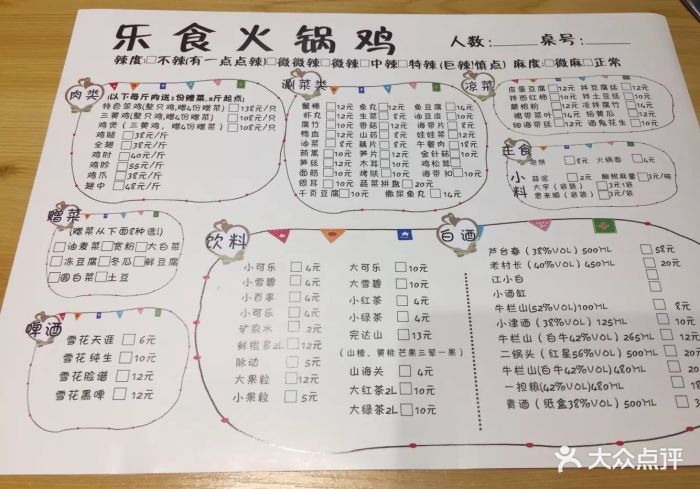 乐食火锅鸡
人数:____ 桌号:____
辣度:□不辣(有一点点辣)□微微辣□微辣□中辣□特辣(巨辣!慎点) 麻度:□微麻□正常
肉类
(以下每斤肉送1份赠菜,2斤起点)
特色菜鸡(整只鸡,赠4份赠菜)□138元/只
三黄鸡(整只鸡,赠4份赠菜)□108元/只
鸡煲(三黄鸡,赠4份赠菜)□108元/只
鸡腿□38元/斤
全翅□38元/斤
鸡肘□38元/斤
鸡胗□55元/斤
鸡爪□38元/斤
翅中□48元/斤
涮菜类
蟹棒□12元 鱼丸□12元 鱼豆腐□14元
虾丸□12元 生菜□8元 油豆皮□10元
腐竹□10元 香菇□8元 海带片□8元
鸭血□12元 山药□8元 娃娃菜□10元
油菜□8元 藕片□8元 午餐肉□18元
茼蒿□10元 笋片□12元 金针菇□10元
笋丝□12元 木耳□10元 鸡松茸□10元
面筋□10元 烤肤□10元 海带扣□10元
银耳□10元 蔬菜拼盘□20元
千页豆腐□10元 撒尿鱼丸□14元
凉菜
皮蛋豆腐□12元 拌豆腐丝□12元
拌西红柿□10元 拌土豆丝□10元
萝根根□10元 凉拌腐竹□14元
糖带菜叶□14元 拍黄瓜□12元
细海带丝□12元 酒鬼花生□10元
主食
泡饼□8元 火锅面□4元
小料
蒜泥□2元 酸甜麻酱□3元/碗
大字(袋装)□3元1袋
恩来顺(袋装)□3元/袋
赠菜
(赠菜从下面8种选!)
□油麦菜□宽粉□大白菜
□冻豆腐□冬瓜□鲜豆腐
□圆白菜□土豆
啤酒
雪花天涯□6元
雪花纯生□10元
雪花脸谱□12元
雪花黑啤□12元
饮料
小可乐□4元 大可乐□10元
小雪碧□4元 大雪碧□10元
小百事□4元 小红茶□4元
小可乐□4元 小绿茶□4元
矿泉水□2元 完达山□13元
鲜橙多2L□12元 (山楂、黄桃芒果三荤一果)
脉动□5元 山海关□4元
大果粒□12元 大红茶2L□10元
小果粒□5元 大绿茶2L□10元
白酒
芦台春(38%VOL)500ML□58元
老村长(40%VOL)450ML□20元
江小白□
小酒缸□
牛栏山(52%VOL)100ML□8元
小津酒(38%VOL)125ML□10元
牛栏山(白牛42%VOL)265ML□12元
二锅头(红星56%VOL)500ML□20元
牛栏山(白牛42%VOL)480ML□18元
一担粮(42%VOL)480ML□18
青酒(纸盒38%VOL)500ML□3
大众点评